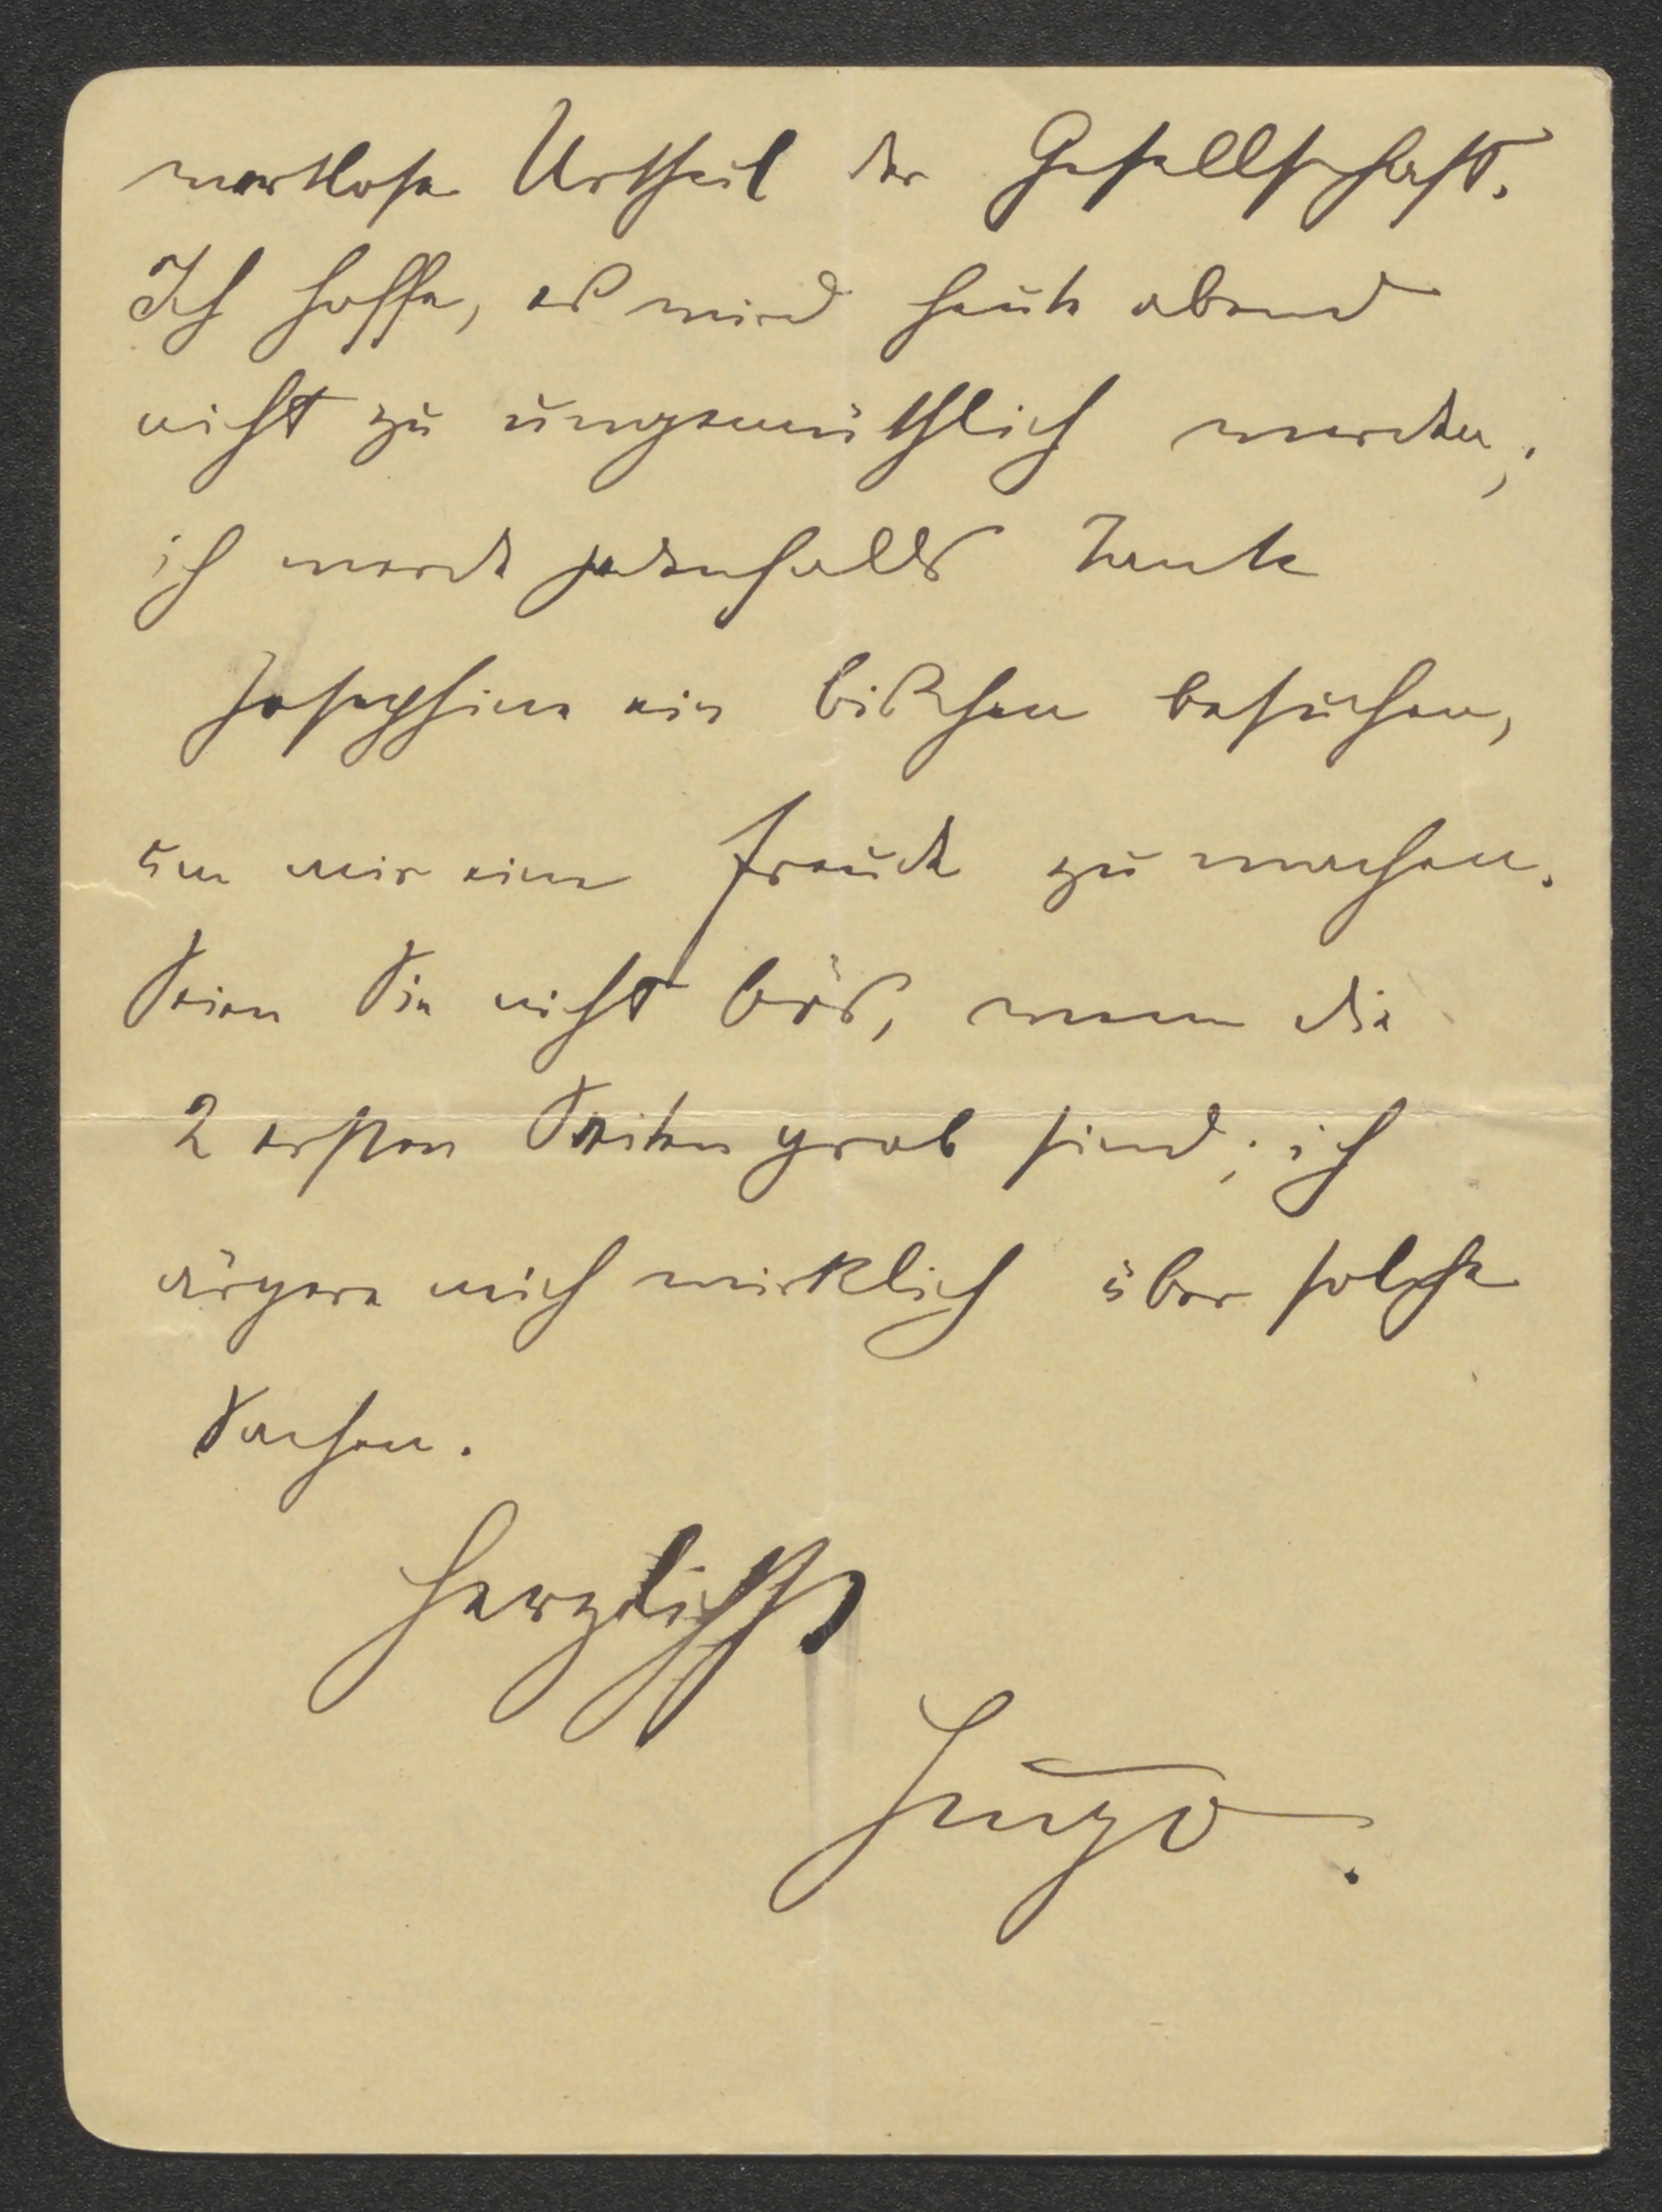 wertlose Urtheil der Gesellschaft.
Ich hoffe, es wird heute abend
nicht zu ungemüthlich werden;
ich werde jedenfalls Tante
Josephine ein bißchen besuchen,
um mir eine Freude zu machen.
Seien Sie nicht bös, wenn die
2 ersten Seiten grob sind; ich
ärgere mich wirklich über solche
Sachen.
Herzlichst
Hugo.